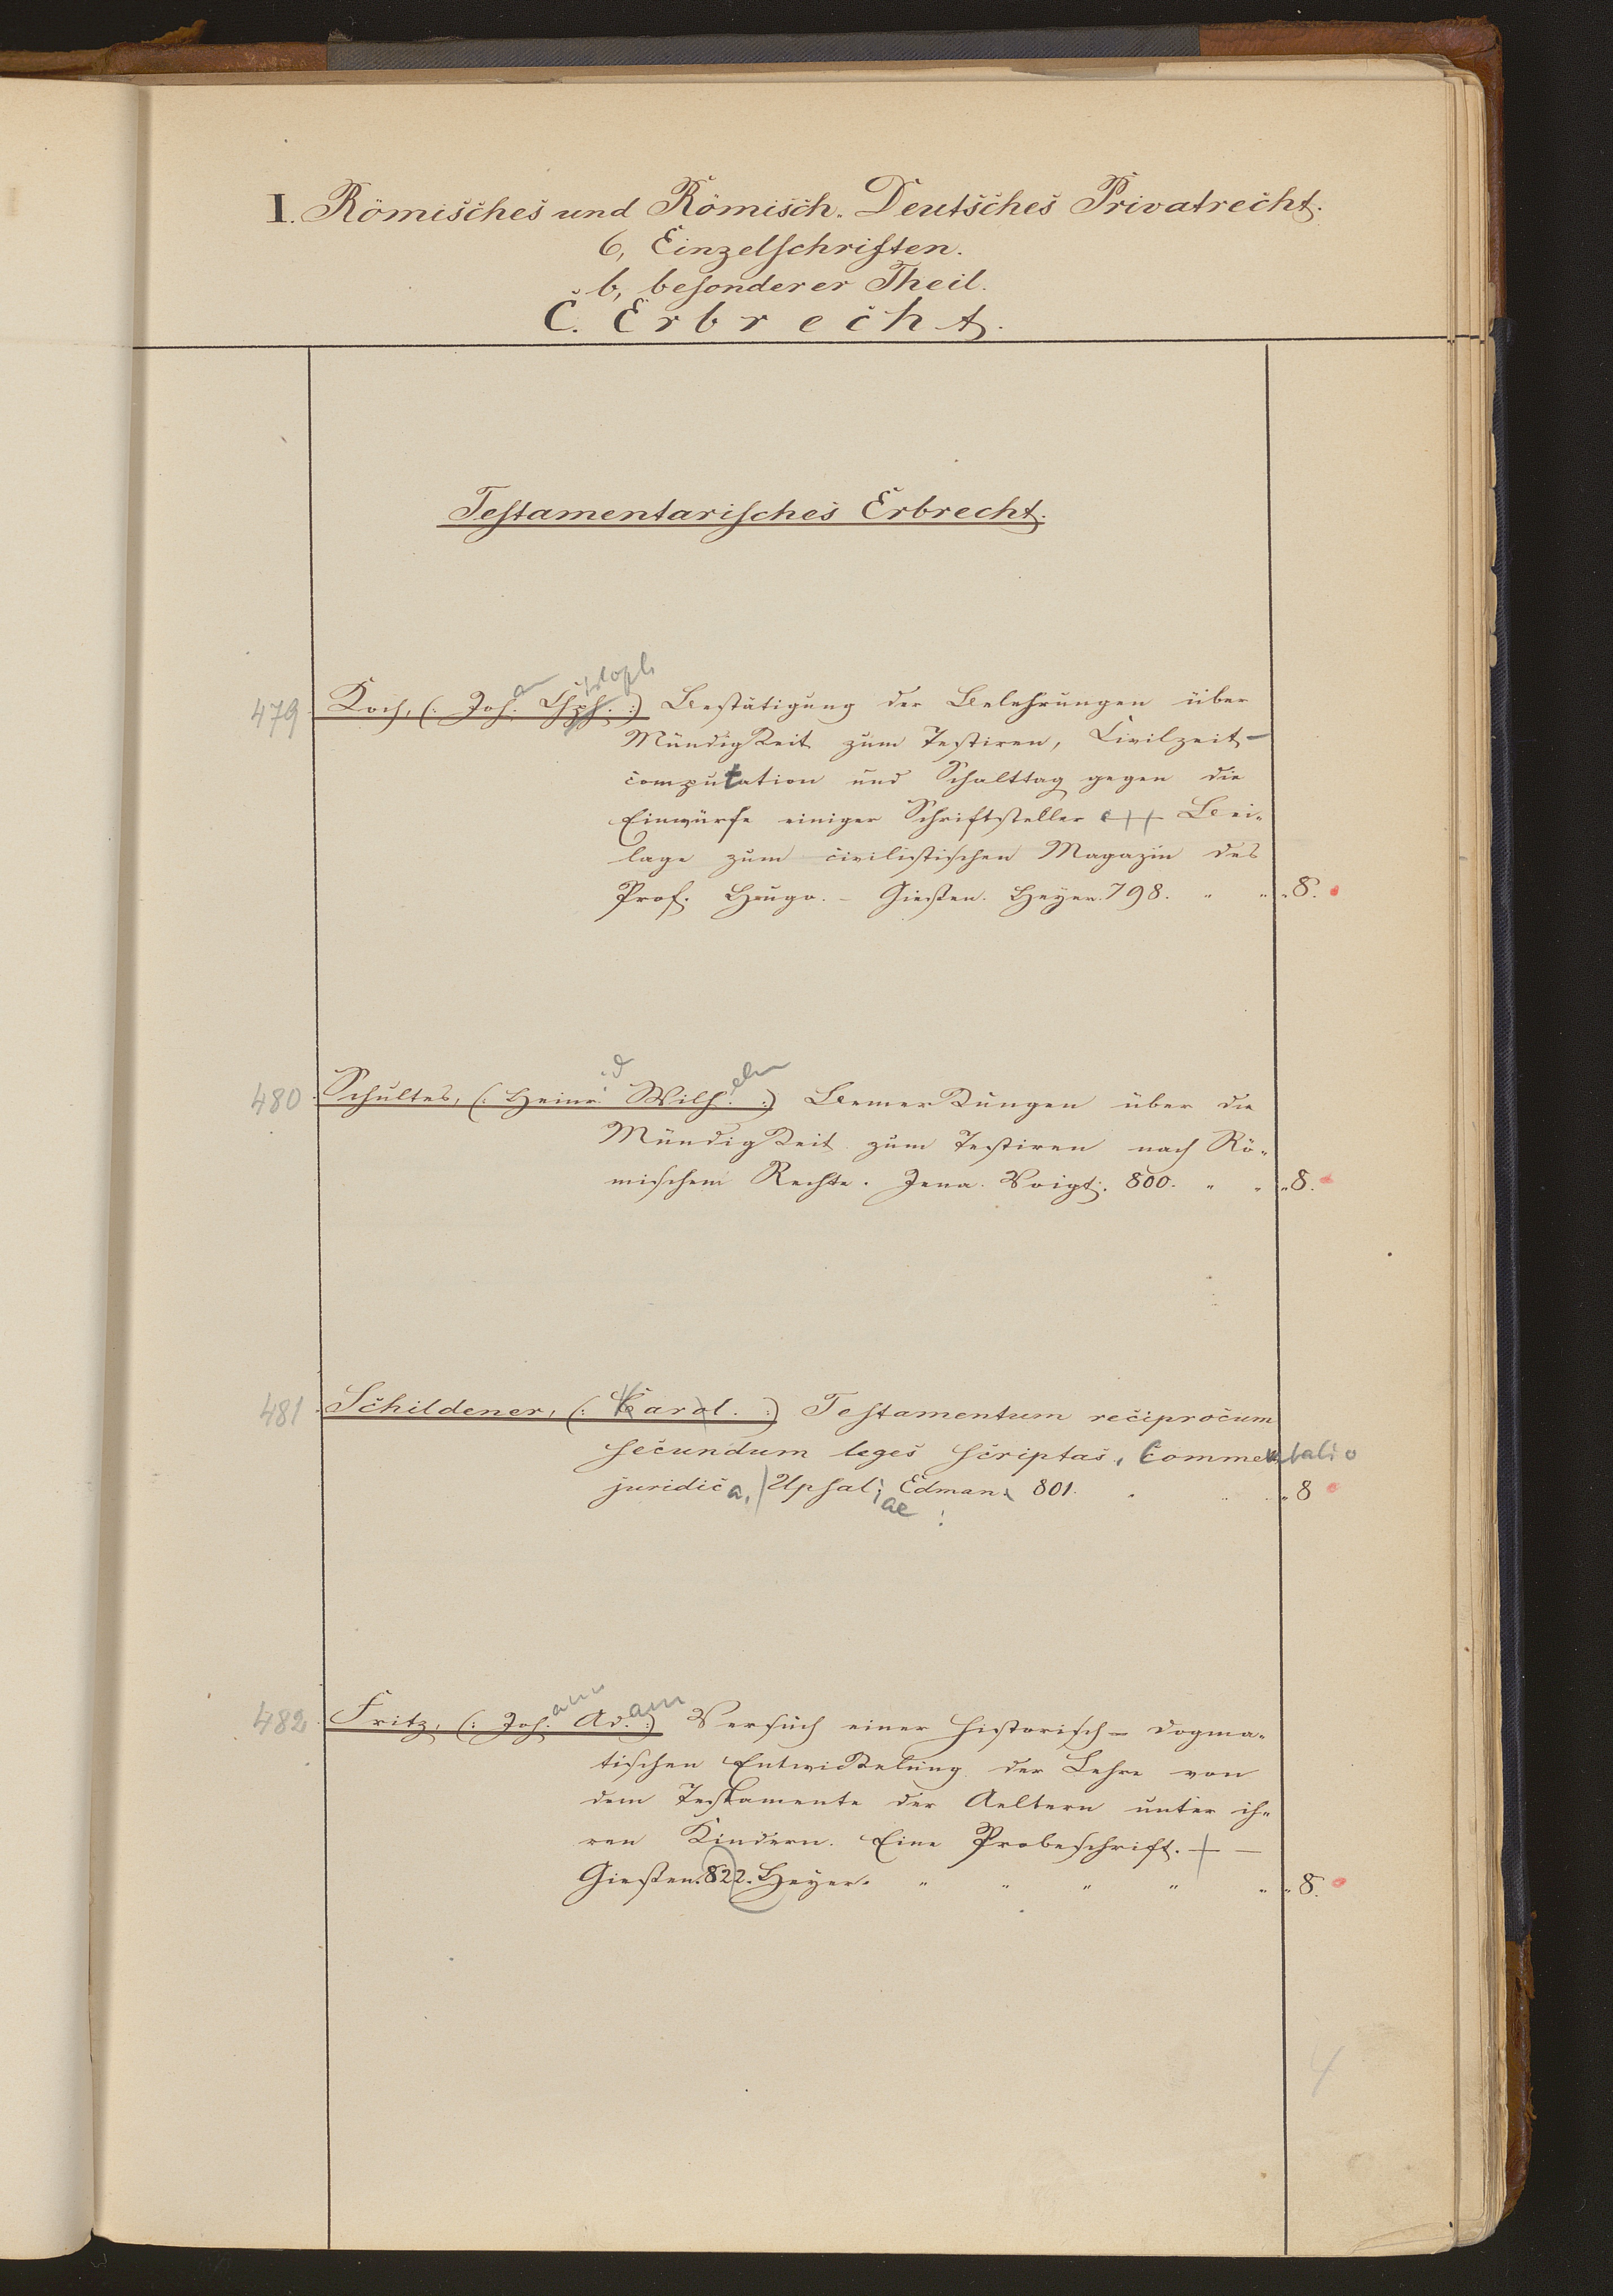 I. Römisches und Römisch. Deutsches Privatrecht.
6, Einzelschriften.
b, besonderer Theil.
C. Erbrecht.
Testamentarisches Erbrecht.
479. Koch, (: Joh. Chph. :) Bestätigung der Belehrungen über
Mündigkeit zum Testiren, Civilzeit-
computation und Schalttag gegen die
Einwürfe einiger Schriftsteller Bei-
lage zum civilistischen Magazin des
Prof. Hugo. - Gießen. Heyer. 798. " " " 8.
480. Schultes, (: Heinr. Wilh. :) Bemerkungen über die
Mündigkeit zum Testiren nach Rö-
mischem Rechte. Jena. Voigt. 800. " " " 8.
481. Schildener, (: Karl. :) Testamentum reciprocum
secundum leges scriptas, Commentatio
juridica, Upsaliae Edman 801. " 8
482. Fritz, (: Johann Adam :) Versuch einer historisch-dogma-
tischen Entwickelung der Lehre von
dem Testamente der Aeltern unter ih-
ren Kindern. Eine Probeschrift.
Gießen. 822. Heyer. " " " " " " 8.
4